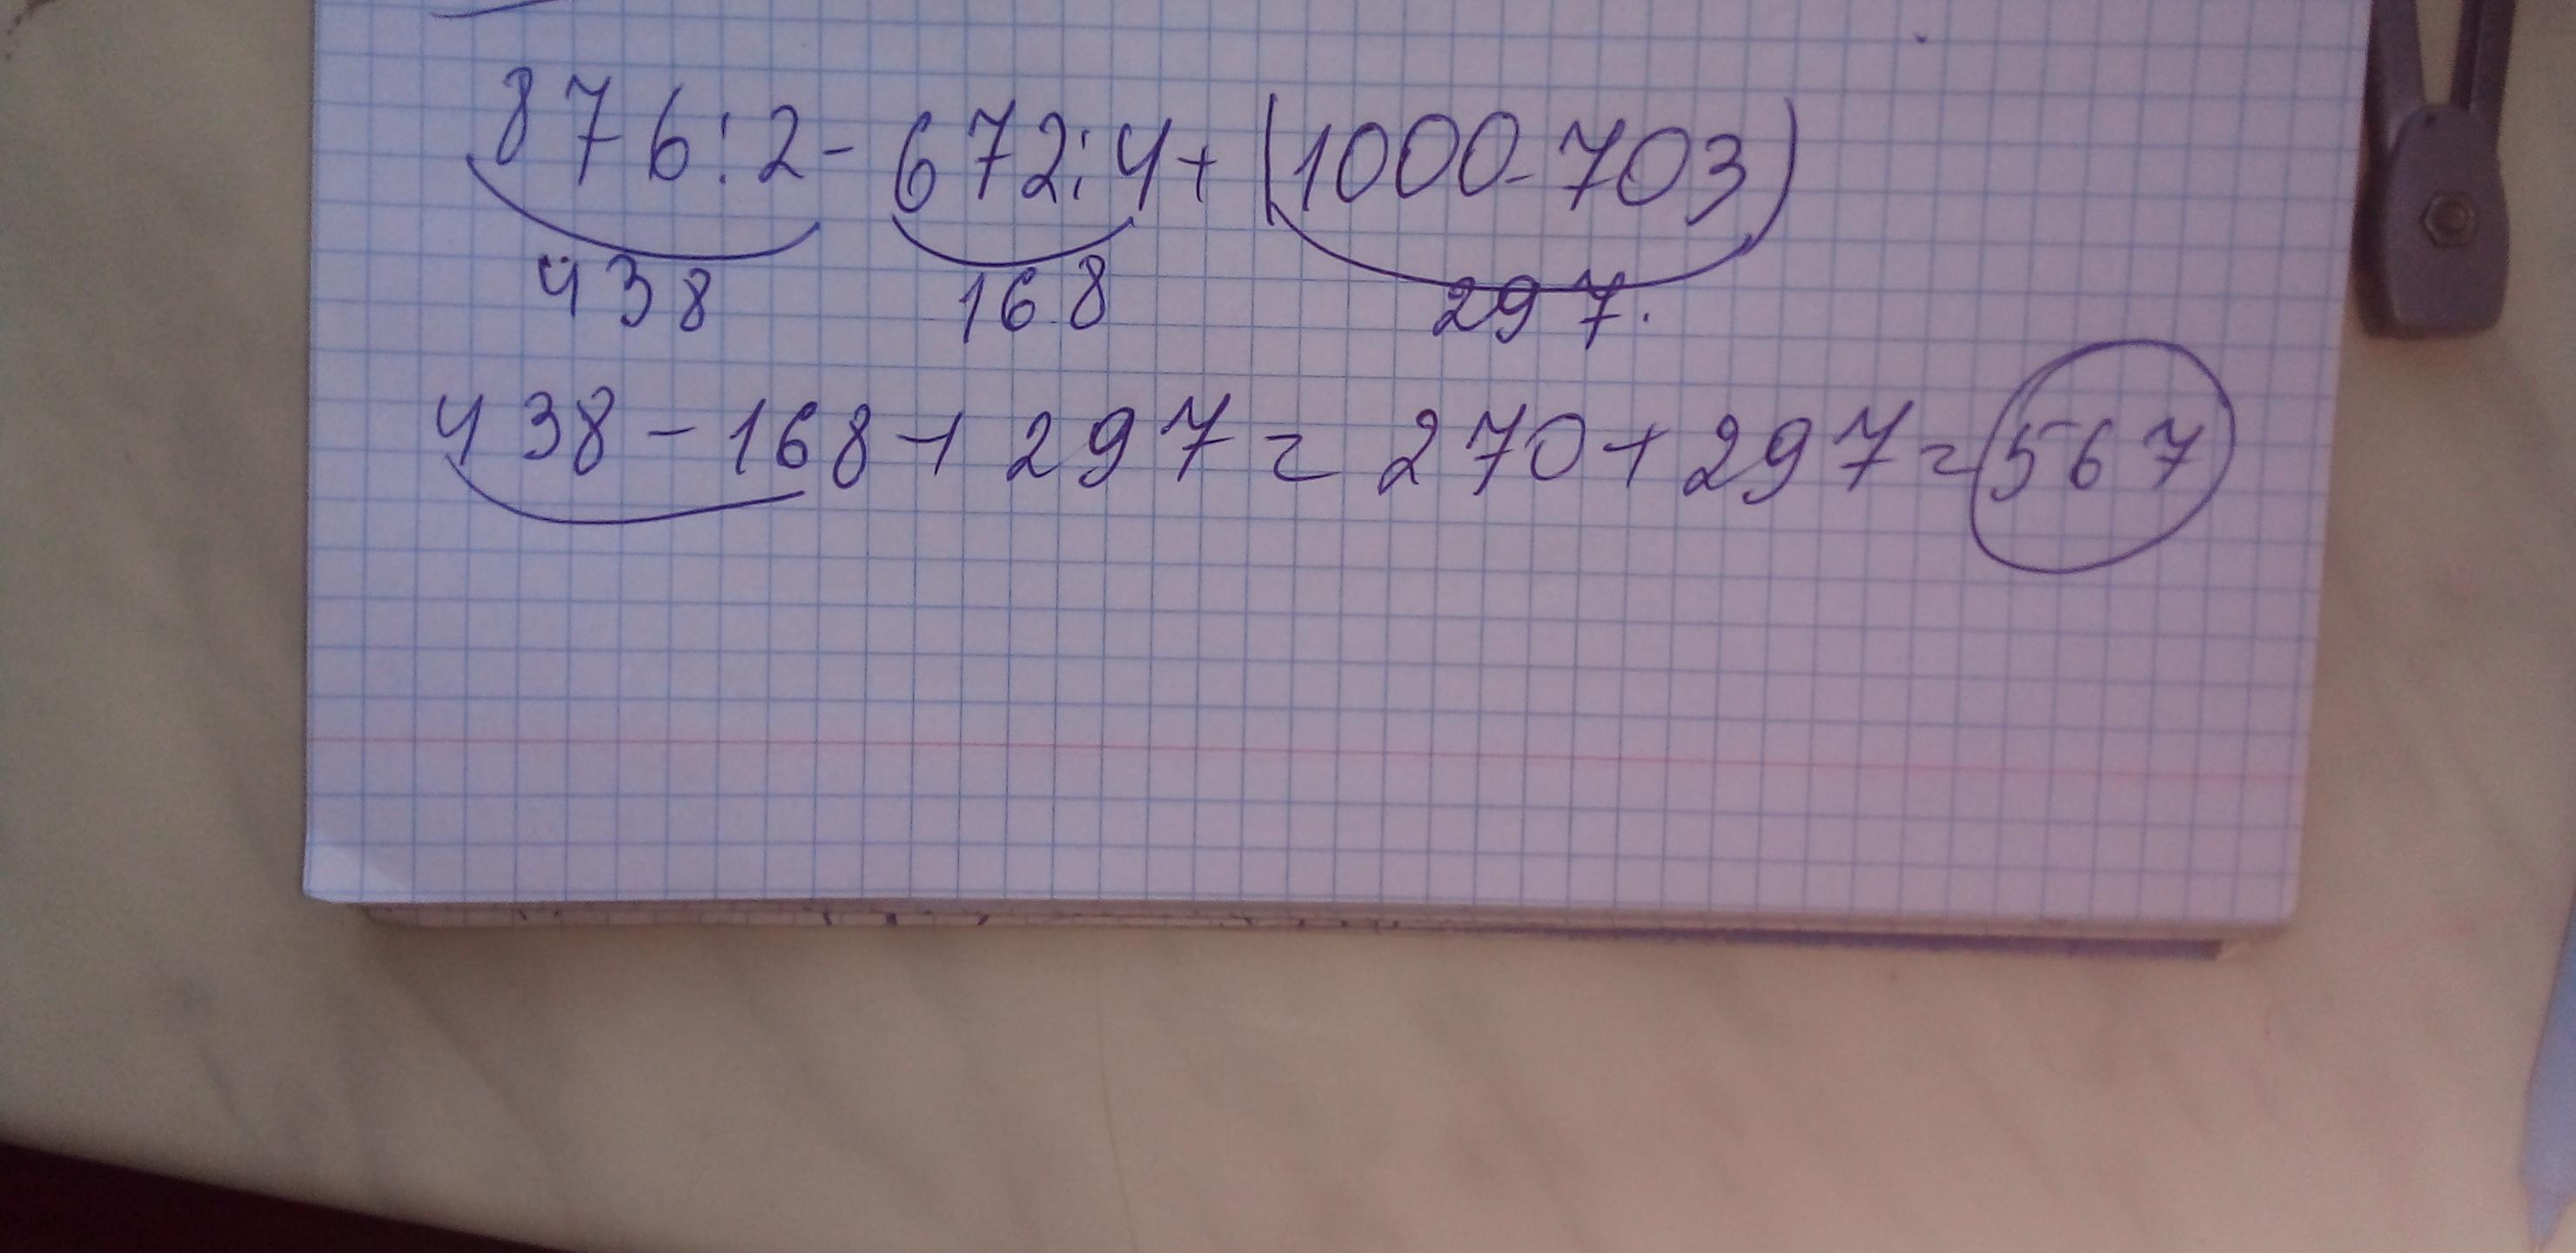 876:2-672:4+(1000-703)
438 168 297.
438-168+297=270+297=567